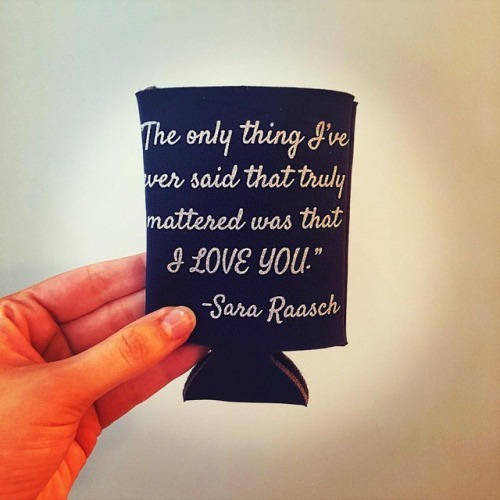 "The only thing I've
ever said that truly
mattered was that
I LOVE YOU."
-Sara Raasch